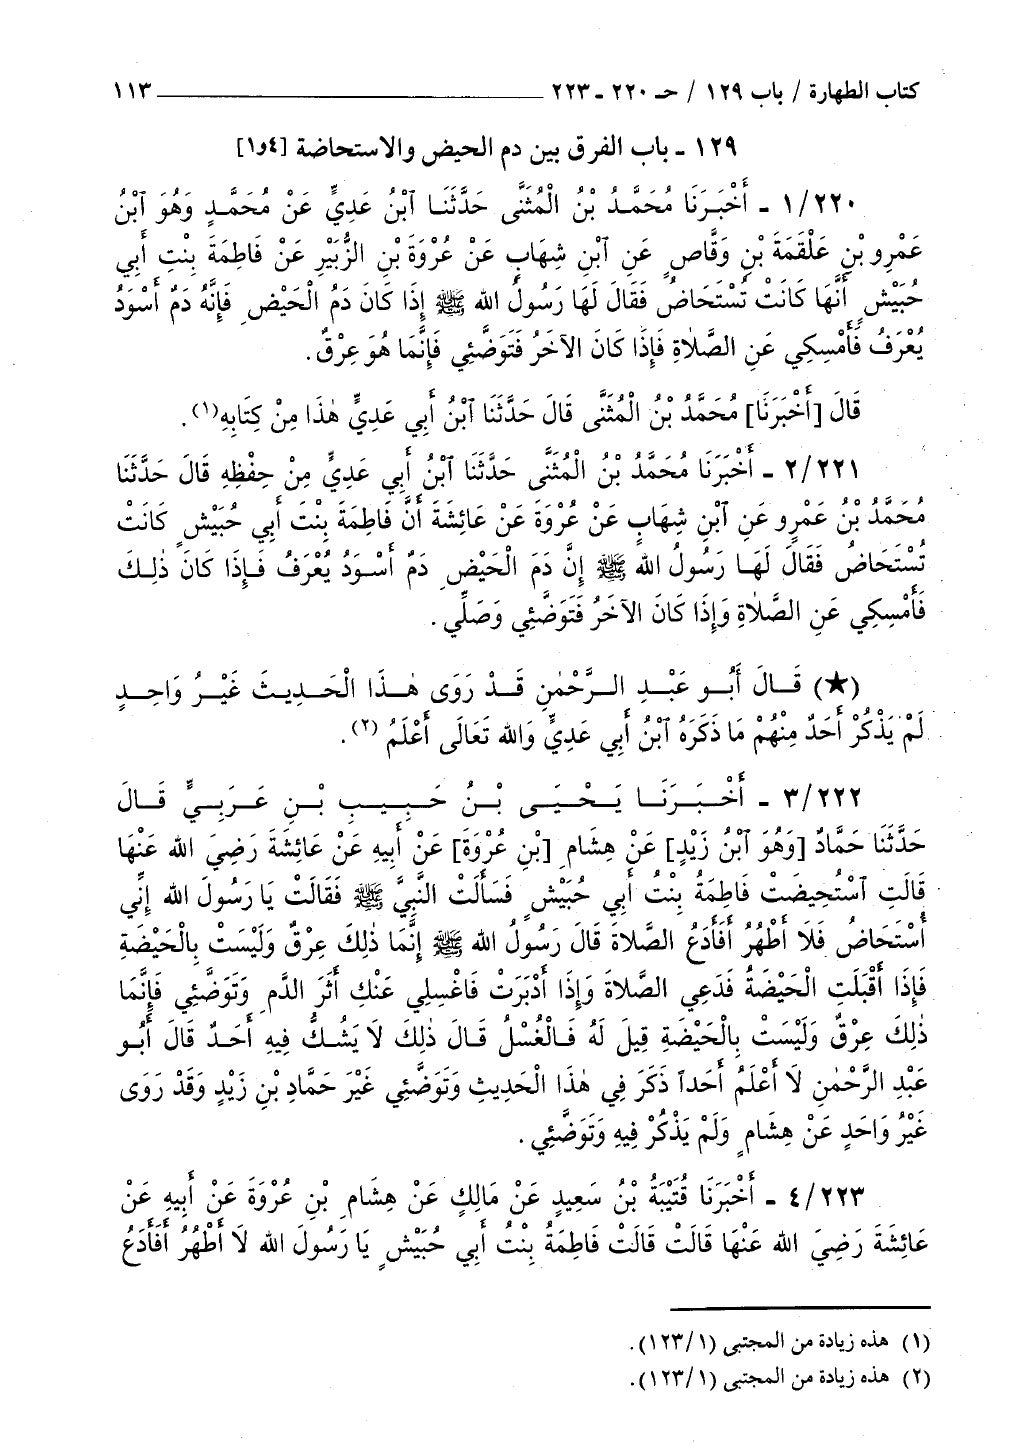 كتاب الطهارة / باب ١٢٩ / حـ ٢٢٠ ـ ٢٢٣ ١١٣
١٢٩ ـ باب الفرق بين دم الحيض والاستحاضة [٤و١]
١/٢٢٠ ـ أَخْبَـرَنَا مُحَمَّـدُ بْنُ الْمُثَنَّى حَدَّثَنَـا ٱبْنُ عَدِيٍّ عَنْ مُحَمَّـدٍ وَهُوَ ٱبْنُ
عَمْرِو بْنِ عَلْقَمَةَ بْنِ وَقَّاصٍ عَنِ ٱبْنِ شِهَابٍ عَنْ عُرْوَةَ بْنِ الزُّبَيْرِ عَنْ فَاطِمَةَ بِنْتِ أَبِي
حُبَيْشٍ أَنَّهَا كَانَتْ تُسْتَحَاضُ فَقَالَ لَهَا رَسُولُ الله ﷺ إِذَا كَانَ دَمُ الْحَيْضِ فَإِنَّهُ دَمٌ أَسْوَدُ
يُعْرَفُ فَأَمْسِكِي عَنِ الصَّلَاةِ فَإِذَا كَانَ الآخَرُ فَتَوَضَّئِي فَإِنَّمَا هُوَ عِرْقٌ.
قَالَ [أَخْبَرَنَا] مُحَمَّدُ بْنُ الْمُثَنَّى قَالَ حَدَّثَنَا ٱبْنُ أَبِي عَدِيٍّ هٰذَا مِنْ كِتَابِهِ(١).
٢/٢٢١ ـ أَخْبَرَنَا مُحَمَّدُ بْنُ الْمُثَنَّى حَدَّثَنَا ٱبْنُ أَبِي عَدِيٍّ مِنْ حِفْظِهِ قَالَ حَدَّثَنَا
مُحَمَّدُ بْنُ عَمْرٍو عَنِ ٱبْنِ شِهَابٍ عَنْ عُرْوَةَ عَنْ عَائِشَةَ أَنَّ فَاطِمَةَ بِنْتَ أَبِي حُبَيْشٍ كَانَتْ
تُسْتَحَاضُ فَقَالَ لَهَـا رَسُولُ الله ﷺ إِنَّ دَمَ الْحَيْضِ دَمٌ أَسْوَدُ يُعْرَفُ فَـإِذَا كَانَ ذٰلِـكَ
فَأَمْسِكِي عَنِ الصَّلَاةِ وَإِذَا كَانَ الآخَرُ فَتَوَضَّئِي وَصَلِّي.
(★) قَـالَ أَبُـو عَبْـدِ الـرَّحْمٰنِ قَـدْ رَوَى هٰـذَا الْحَـدِيثَ غَيْـرُ وَاحِـدٍ
لَمْ يَذْكُرْ أَحَدٌ مِنْهُمْ مَا ذَكَرَهُ ٱبْنُ أَبِي عَدِيٍّ وَالله تَعَالَى أَعْلَمُ(٢).
٣/٢٢٢ ـ أَخْـبَـرَنَـا يَـحْيَـى بْـنُ حَـبِيـبِ بْـنِ عَـرَبِـيٍّ قَـالَ
حَدَّثَنَا حَمَّادٌ [وَهُوَ ٱبْنُ زَيْدٍ] عَنْ هِشَامِ [بْنِ عُرْوَةَ] عَنْ أَبِيهِ عَنْ عَائِشَةَ رَضِيَ الله عَنْهَا
قَالَتِ ٱسْتُحِيضَتْ فَاطِمَةُ بِنْتُ أَبِي حُبَيْشٍ فَسَأَلَتْ النَّبِيَّ ﷺ فَقَالَتْ يَا رَسُولَ الله إِنِّي
أُسْتَحَاضُ فَلَا أَطْهُرُ أَفَأَدَعُ الصَّلَاةَ قَالَ رَسُولُ الله ﷺ إِنَّمَا ذٰلِكَ عِرْقٌ وَلَيْسَتْ بِالْحَيْضَةِ
فَإِذَا أَقْبَلَتِ الْحَيْضَةُ فَدَعِي الصَّلَاةَ وَإِذَا أَدْبَرَتْ فَاغْسِلِي عَنْكِ أَثَرَ الدَّمِ وَتَوَضَّئِي فَإِنَّمَا
ذٰلِكَ عِرْقٌ وَلَيْسَتْ بِالْحَيْضَةِ قِيلَ لَهُ فَـالْغُسْلُ قَـالَ ذٰلِكَ لَا يَشُـكُّ فِيهِ أَحَـدٌ قَالَ أَبُـو
عَبْدِ الرَّحْمٰنِ لَا أَعْلَمُ أَحَداً ذَكَرَ فِي هٰذَا الْحَدِيثِ وَتَوَضَّئِي غَيْرَ حَمَّادِ بْنِ زَيْدٍ وَقَدْ رَوَى
غَيْرُ وَاحَدٍ عَنْ هِشَامٍ وَلَمْ يَذْكُرْ فِيهِ وَتَوَضَّئِي.
٤/٢٢٣ ـ أَخْبَرَنَا قُتَيْبَةُ بْنُ سَعِيدٍ عَنْ مَالِكٍ عَنْ هِشَامِ بْنِ عُرْوَةَ عَنْ أَبِيهِ عَنْ
عَائِشَةَ رَضِيَ الله عَنْهَا قَالَتْ قَالَتْ فَاطِمَةُ بِنْتُ أَبِي حُبَيْشٍ يَا رَسُولَ الله لَا أَطْهُرُ أَفَأَدَعُ
(١) هذه زيادة من المجتبى (١٢٣/١).
(٢) هذه زيادة من المجتبى (١٢٣/١).